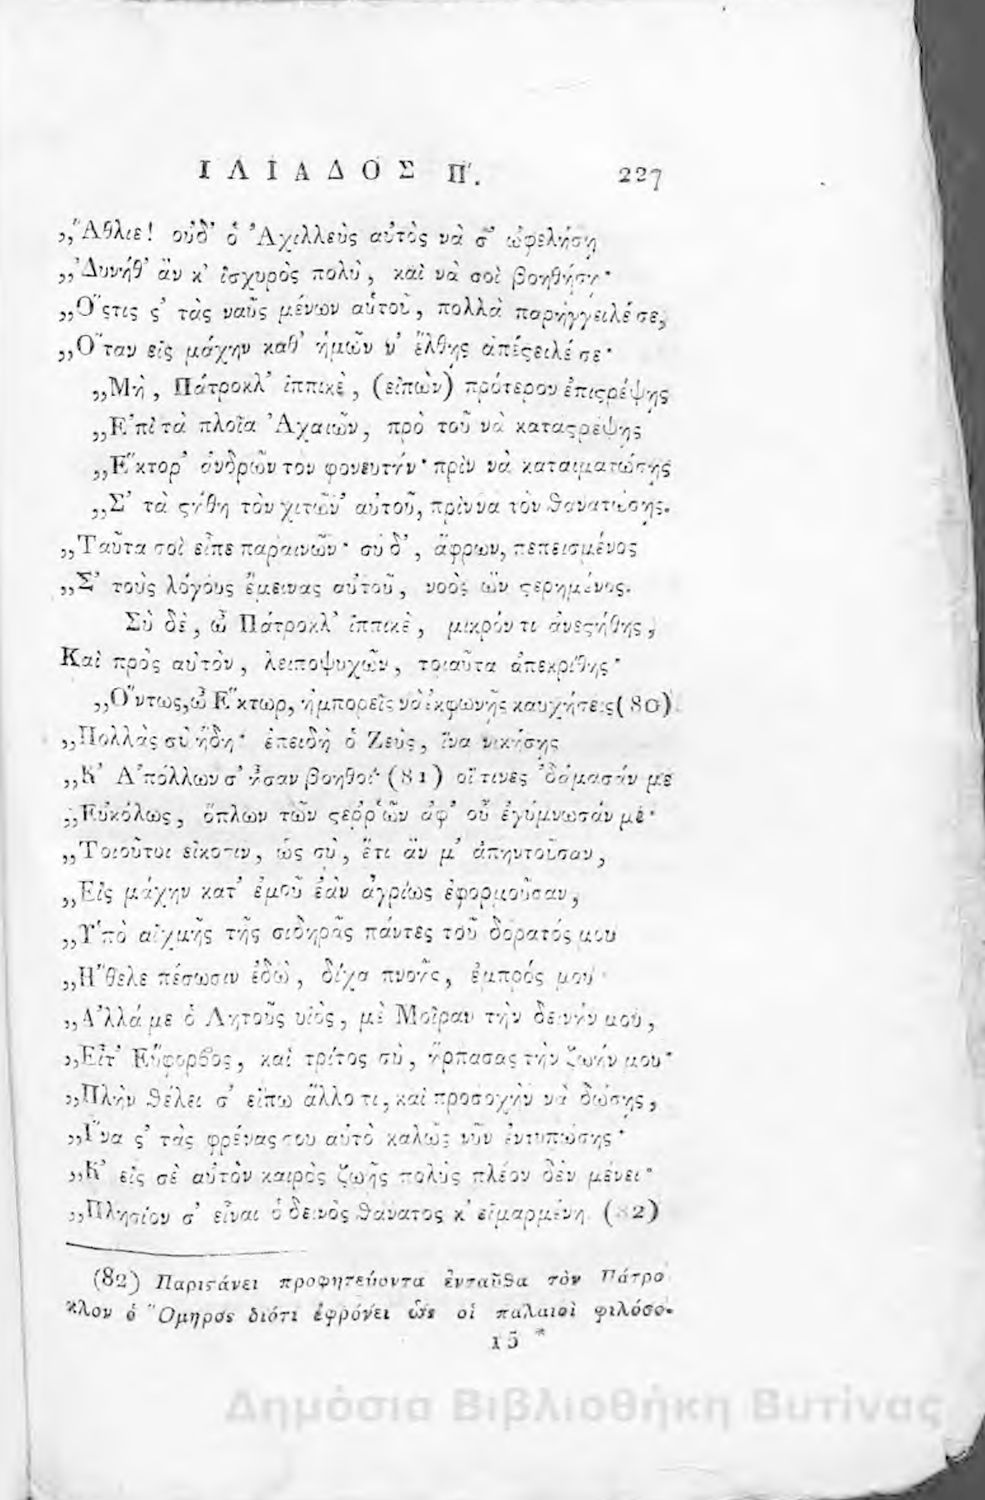 ΙΛΙΑΔΟΣ Π'. 227
„Ἄθλιε! οὐδ' ὁ Ἀχιλλεὺς αὐτὸς νὰ σ' ὠφελήσῃ
„Δυνήθ' ἂν κ' ἰσχυρὸς πολὺ, καὶ νὰ σοὶ βοηθήσῃ·
„Ὅςτις ς' τὰς ναῦς μένων αὑτοῦ, πολλὰ παρήγγειλέ σε,
„Ὅταν εἰς μάχην καθ' ἡμῶν ν' ἔλθῃς ἀπέςειλέ σε·
„Μὴ, Πάτροκλ' ἱππικὲ, (εἰπὼν) πρότερον ἐπιςρέψῃς
„Ἐπὶ τὰ πλοῖα Ἀχαιῶν, πρὸ τοῦ νὰ καταςρέψῃς
„Ἕκτορ' ἀνδρῶν τον φονευτὴν· πρὶν νὰ καταιματώσῃς
„Σ' τὰ ςήθη τὸν χιτῶν' αὐτοῦ, πρὶν να τὸν θανατώσῃς.
„Ταῦτα σοὶ εἶπε παραινῶν· σὺ δ', ἄφρων, πεπεισμένος
„Σ' τοὺς λόγους ἔμεινας αὐτοῦ, νοὸς ὢν ςερημένος.
Σὺ δὲ, ὦ Πάτροκλ' ἱππικὲ, μικρόν τι ἀνεςήθης,
Καὶ πρὸς αὐτὸν, λειποψυχῶν, τοιαῦτα ἀπεκρίθης·
„Ὄντως, ὦ Ἕκτωρ, ἠμπορεῖς νὰ ἐκφωνῇς καυχήσεις (80)
„Πολλὰς σὺ ἤδη· ἐπειδὴ ὁ Ζεὺς, ἵνα νικήσῃς
„Κ' Ἀπόλλων σ' ἦσαν βοηθοί· (81) οἵτινες 'δάμασάν με
„Εὐκόλως, ὅπλων τῶν ςερρῶν ἀφ' οὗ ἐγύμνωσάν με·
„Τοιοῦτοι εἴκοσιν, ὡς σὺ, ἔτι ἂν μ' ἀπηντοῦσαν,
„Εἰς μάχην κατ' ἐμοῦ ἐὰν ἀγρίως ἐφορμοῦσαν,
„Ὑπὸ αἰχμῆς τῆς σιδηρᾶς πάντες τοῦ δόρατός μου
„Ἤθελε πέσωσιν ἐδῶ, δίχα πνοῆς, ἐμπρός μου·
„Ἀλλά με ὁ Λητοῦς υἱὸς, μὲ Μοῖραν τὴν δεινήν μου,
„Εἶτ' Εὔφορβος, καὶ τρίτος σὺ, ἥρπασας τὴν ζωήν μου·
„Πλὴν θέλει σ' εἴπω ἄλλο τι, καὶ προσοχὴν νὰ δώσῃς,
„Ἵνα ς' τὰς φρένας σου αὐτὸ καλῶς νῦν ἐντυπώσῃς·
„Κ' εἰς σὲ αὐτὸν καιρὸς ζωῆς πολὺς πλέον δὲν μένει·
„Πλησίον σ' εἶναι ὁ δεινὸς θάνατος κ' εἱμαρμένη. (82)
(82) Παριςάνει προφητεύοντα ἐνταῦθα τὸν Πάτρο
κλον ὁ Ὅμηρος διότι ἐφρόνει ὡς οἱ παλαιοὶ φιλόσο-
15 *
Δημόσια Βιβλιοθήκη Βυτίνας